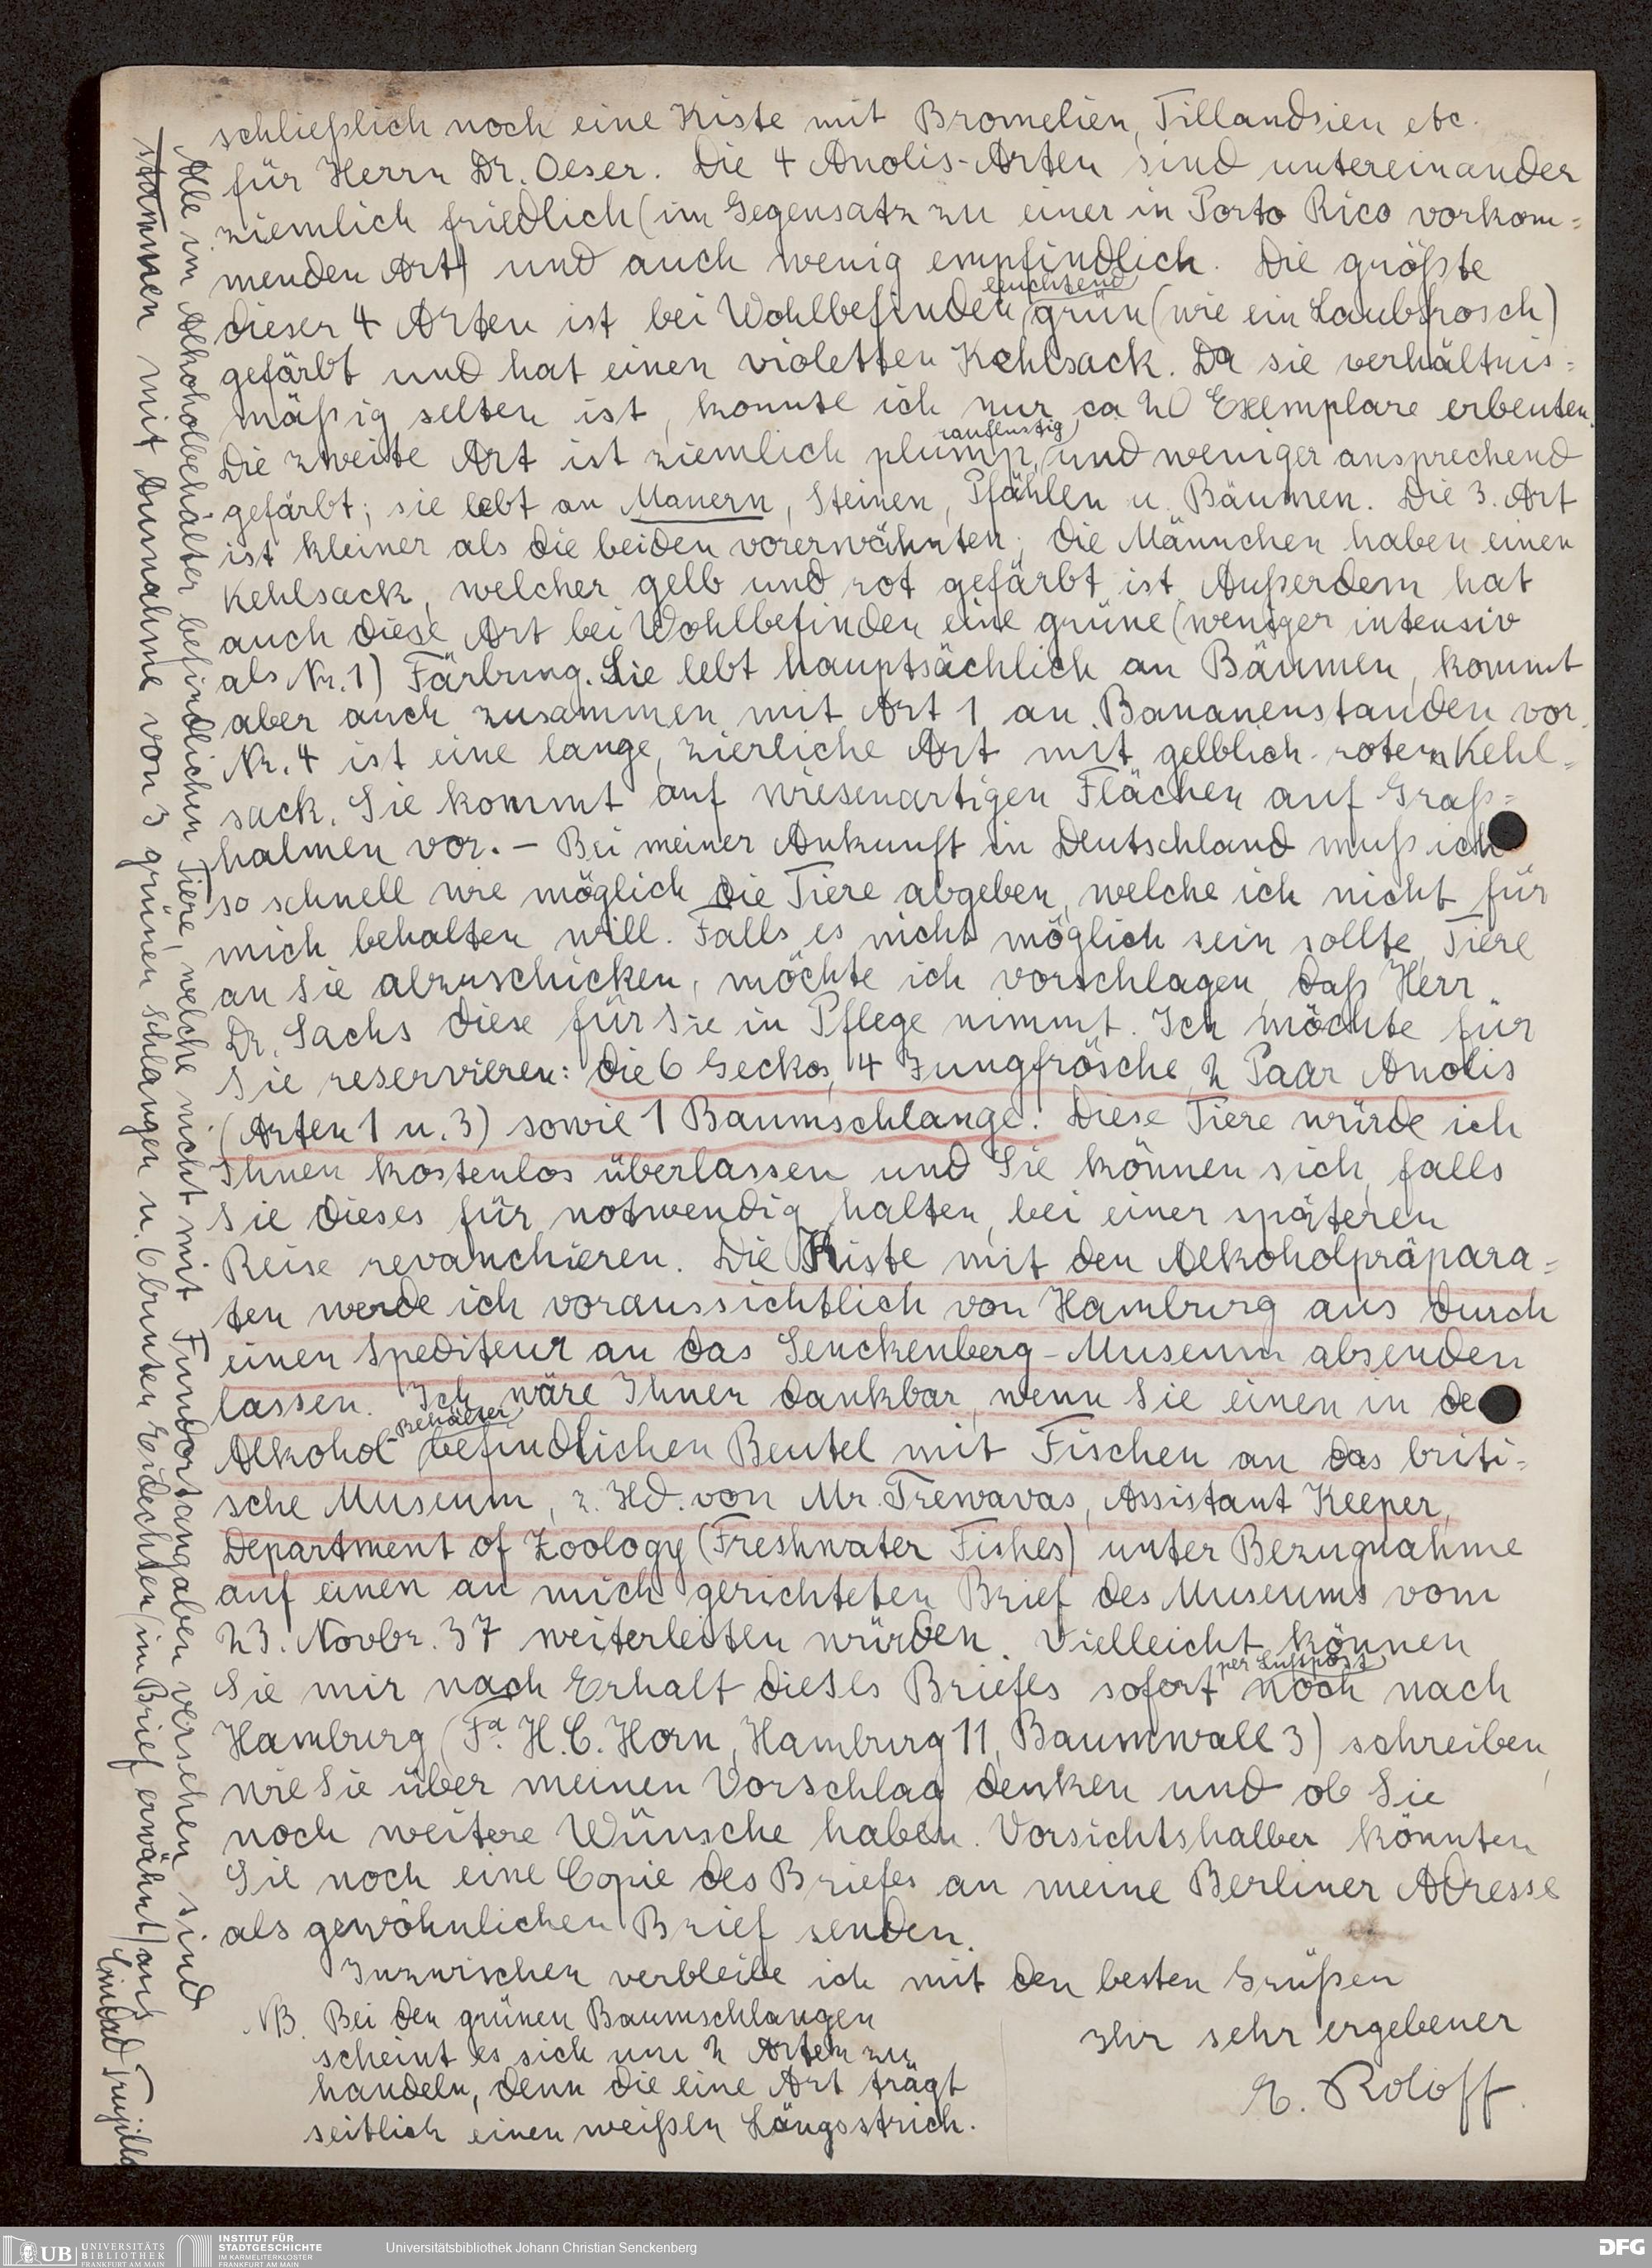 schließlich noch eine Kiste mit Bromelien, Tillandsien etc.
für Herrn Dr. Oeser. Die 4 Anolis-Arten sind untereinander
ziemlich friedlich (im Gegensatz zu einer in Porto Rico vorkom=
menden Art) und auch wenig empfindlich. Die größte
leuchtend
dieser 4 Arten ist bei Wohlbefinden grün (wie ein Laubfrosch)
gefärbt und hat einen violetten Kehlsack. Da sie verhältnis=
mäßig selten ist, konnte ich nur ca 20 Exemplare erbeuten.
rauflustig
Die zweite Art ist ziemlich plump, und weniger ansprechend
gefärbt; sie lebt an Mauern, Steinen, Pfählen u. Bäumen. Die 3. Art
ist kleiner als die beiden vorerwähnten; die Männchen haben einen
Kehlsack, welcher gelb und rot gefärbt ist. Außerdem hat
auch diese Art bei Wohlbefinden eine grüne (weniger intensiv
als Nr. 1) Färbung. Sie lebt hauptsächlich an Bäumen, kommt
aber auch zusammen mit Art 1 an Bananenstauden vor.
Nr. 4 ist eine lange, zierliche Art mit gelblich-rotem Kehl=
sack. Sie kommt auf wiesenartigen Flächen auf Graß=
halmen vor. – Bei meiner Ankunft in Deutschland muß ich
so schnell wie möglich die Tiere abgeben, welche ich nicht für
mich behalten will. Falls es nicht möglich sein sollte, Tiere
an Sie abzuschicken, möchte ich vorschlagen, daß Herr
Dr. Sachs diese für Sie in Pflege nimmt. Ich möchte für
Sie reservieren: die 6 Geckos, 4 Jungfrösche, 2 Paar Anolis
(Arten 1 u. 3) sowie 1 Baumschlange. Diese Tiere würde ich
Ihnen kostenlos überlassen und Sie können sich, falls
Sie dieses für notwendig halten, bei einer späteren
Reise revanchieren. Die Kiste mit den Alkoholpräpara=
ten werde ich voraussichtlich von Hamburg aus durch
einen Spediteur an das Senckenberg-Museum absenden
lassen. Ich wäre Ihnen dankbar, wenn Sie einen in de
-Behälter
Alkohol befindlichen Beutel mit Fischen an das briti=
sche Museum, z. Hd. von Mr. Trewavas, Assistant Keeper,
Department of Zoology (Freshwater Fishes) unter Bezugnahme
auf einen an mich gerichteten Brief des Museums vom
23. Novbr. 37 weiterleiten würden. Vielleicht können
per Luftpost
Sie mir nach Erhalt dieses Briefes sofort noch nach
Hamburg (Fa. H.C. Horn, Hamburg 11, Baumwall 3) schreiben,
wie Sie über meinen Vorschlag denken und ob Sie
noch weitere Wünsche haben. Vorsichtshalber könnten
Sie noch eine Copie des Briefes an meine Berliner Adresse
als gewöhnlichen Brief senden.
Inzwischen verbleibe ich mit den besten Grüßen
Ihr sehr ergebener
E. Roloff.
NB. Bei den grünen Baumschlangen
scheint es sich um 2 Arten zu
handeln, denn die eine Art trägt
seitlich einen weißen Längsstrich.
Alle im Alkoholbehälter befindlichen Tiere, welche nicht mit Fundortangaben versehen sind
stammen mit Ausnahme von 3 grünen Schlangen u. 6 bunten Eidechsen (im Brief erwähnt) aus
Ciudad Trujillo
UB UNIVERSITÄTS
BIBLIOTHEK
FRANKFURT AM MAIN
INSTITUT FÜR
STADTGESCHICHTE
IM KARMELITERKLOSTER
FRANKFURT AM MAIN
Universitätsbibliothek Johann Christian Senckenberg
DFG